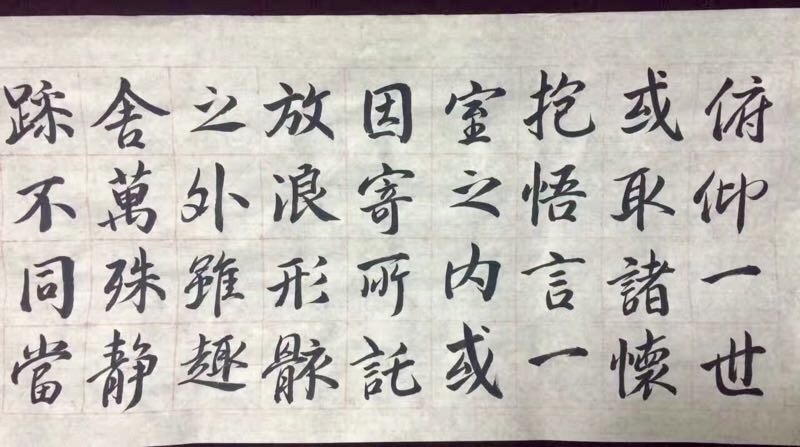 俯仰一世
或取諸懷
抱悟言一
室之内或
因寄所託
放浪形骸
之外雖趣
舍萬殊静
踩不同當